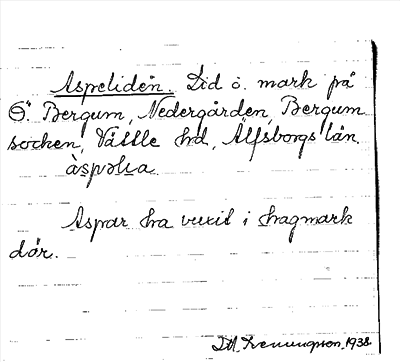 Aspeliden. Lid o. mark på
Ö. Bergum, Nedergården, Bergum
socken, Vättle hd, Älfsborgs län.
àspəlia.
Aspar ha vuxit i hagmark
där.
1938